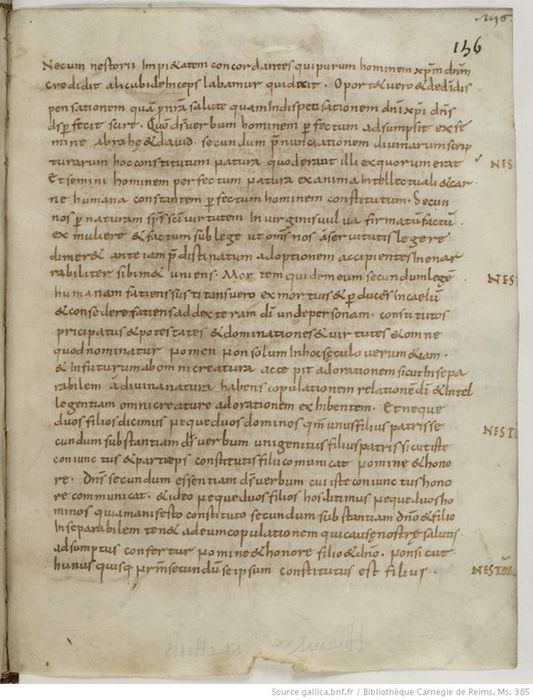 156
156
Necum nestorii impi&atem concordantes qui purum hominem xp̄m dn̄m
credidit alicubi deinceps labamur qui dixit . Oport& vero & de ... dis
pensationem quā p nr̄a salute ... indispensationem dn̄i xp̄i dn̄s
ds̄ pfecit scire . Quod ds̄ verbum hominem perfectum adsumpsit ex se
mine abrahę & david . secundum pnunciationem divinarum scrip
turarum hoc constitutum natura quod erant illi ex quorum erat
NES
Et semini hominem perfectum natura ex anima intellectuali & car
ne humana constantem perfectum hominem constitutum . Secun
nos p naturam sps̄ sc̄i virtutem in virginis vulva firmatum factū
ex muliere & factum sub lege ut om̄s nos a servitutis legere
dimer& ante iam pdistinatum adoptionem accipientes inenar
rabiliter sibim& uniens . Mortem quidem eum secundum legē
NEST
humanam faciens suscitans vero ex mortuis & pducens in caelū
& consedere faciens ad dexteram dī unde personam . constitutos
pricipatus & potestates & dominationes & virtutes & omne
quod nominatur nomen non solum in hoc sęculo verum &iam .
& in futurum ab omni creatura accepit adorationem sicut insepa
rabilem a divina natura habens copulationem relationē dī & intel
legentiam omni creature adorationem exhibentem . Et neque
duos filios dicimus neque duos dominos qm̄ unus filius patris se
NESTO
cundum substantiam ds̄ verbum unigenitus filius patris sicut iste
coniunctus & particeps constitutus filii communicat nomine & hono
re . Dn̄s secundum essentiam ds̄ verbum cui iste coniunctus hono
re communicat . & ideo neque duos filios hos dicimus neque duos ho
minos qua manifesto constituto secundum substantiam dn̄o & filio
inseparabilem ten& ad eum copulationem qui causę nostrę salutis
adsumptus confertur nomine & honore filio & dn̄o . Non sicut
hunus quisq; nr̄m secundū se ipsum constitutus est filius .
NESTOR
Source gallica.bnf.fr / Bibliothèque Carnegie de Reims. Ms. 385